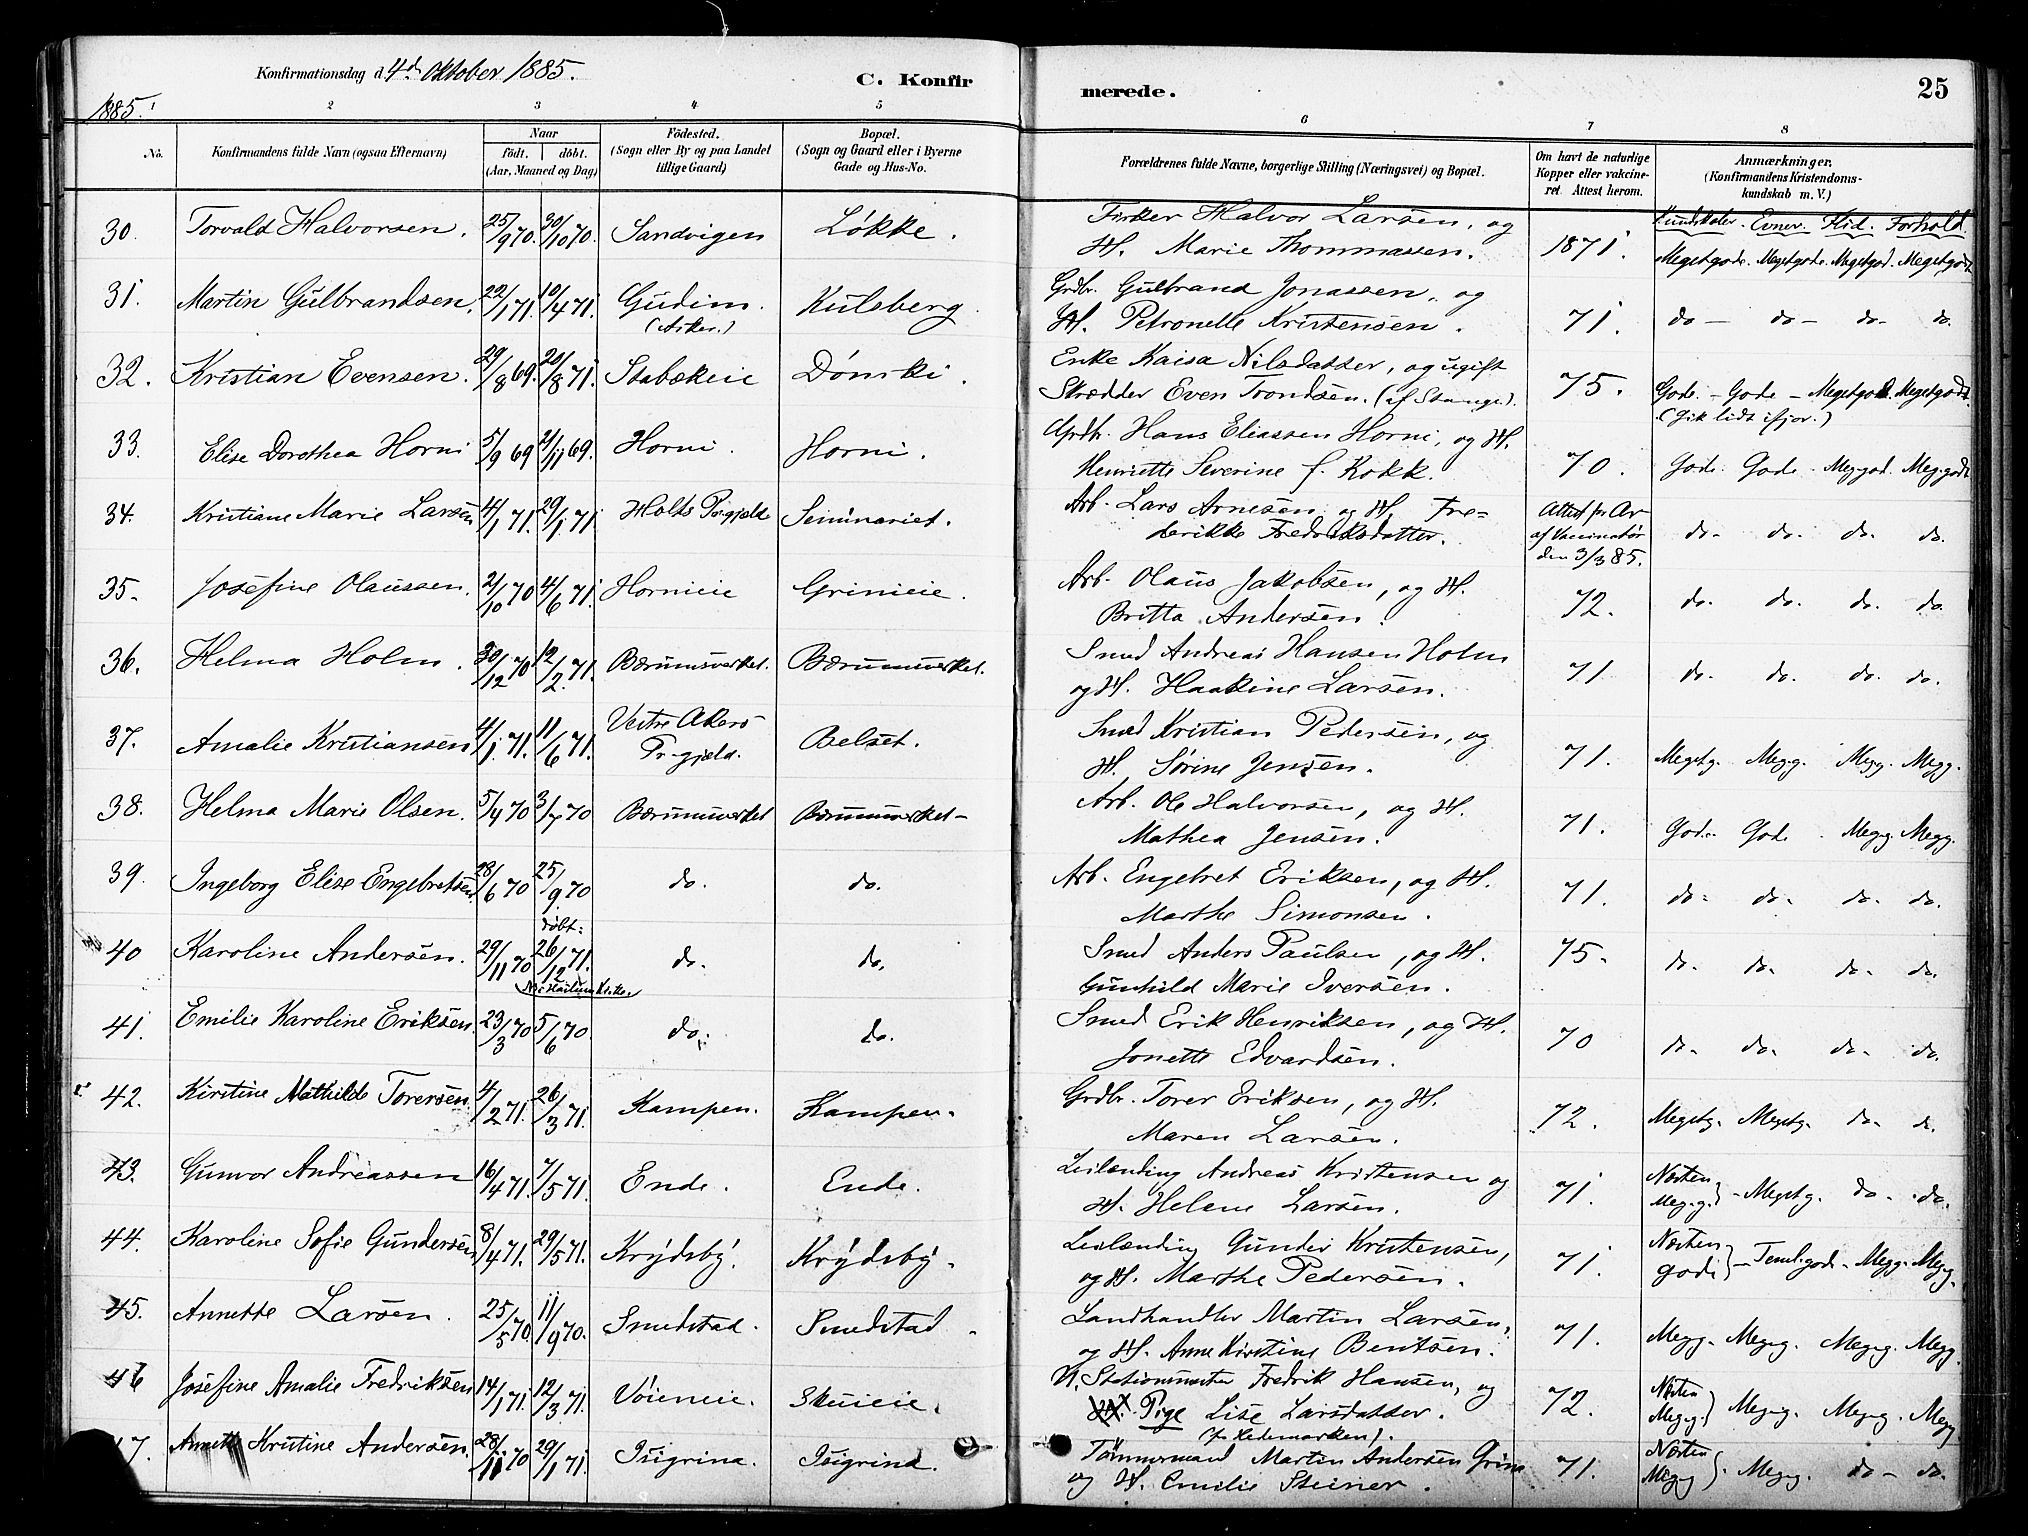 Konfirmationsdag d. 4de Oktober 1885.
C. Konfir
merede.
25
1885.
1 2 3 4 5 6 7 8
No.
Konfirmandens fulde Navn (ogsaa Efternavn)
Naar
født. døbt.
(Aar, Maaned og Dag)
Fødested.
(Sogn eller By og paa Landet
tillige Gaard)
Bopæl.
(Sogn og Gaard eller i Byerne
Gade og Hus-No.
Forældrenes fulde Navne, borgerlige Stilling (Næringsvei) og Bopæl.
Om havt de naturlige
Kopper eller vakcine-
ret. Attest herom.
Anmærkninger.
(Konfirmandens Kristendoms-
kundskab m. V.)
Kundskaber. Evner. Flid. Forhold.
30. Torvald Halvorsen. 25/9 70. 30/10 70. Sandvigen Løkke. Fisker Halvor Larsen, og
H. Marie Thommassen. 1871. Megetgode. Megetgode. Megetgod. Megetgodt.
31. Martin Gulbrandsen. 22/1 71. 10/4 71. Gudim. (Asker.) Kulsberg. Grdbr. Gulbrand Jonassen, og
H. Petronelle Kristensen. 71. do - do - do - do.
32. Kristian Evensen. 29/8 69. 20/8 71. Stabækeie Dønski. Enke Kaisa Nilsdatter, og ugift
Skrædder Even Trondsen. (af Stange.) 75. Gode. - Gode - Megetgod. Megetgodt.
(Gik lidt ifjor.)
33. Elise Dorothea Horni 5/9 69 21/11 69. Horni. Horni. Grdbr. Hans Eliassen Horni, og H.
Henriette Severine f. Kokk. 70. Gode. Gode - Meg.god. Meg.godt
34. Kristiane Marie Larsen 4/1 71. 29/1 71. Holts Pr.gjeld Seminariet. Arb. Lars Arnesen og H. Fre=
derikke Fredriksdatter. Attest fr Ar
af Vaccinatør
den 3/3 85. do. do. do. do.
35. Josefine Olaussen. 2/10 70 4/6 71. Hornieie Grinieie. Arb. Olaus Jakobsen, og H.
Britta Andersen. 72. do. do. do. do.
36. Helma Holm. 30/12 70 12/2 71. Bærumsverket. Bærumsverket. Smed Andreas Hansen Holm
og H. Haakine Larsen. 71 do. do. do. do.
37. Amalie Kristiansen 4/1 71. 11/6 71. Vestre Akers
Pr-gjeld. Belset. Smed Kristian Pedersen, og
H. Sørine Jensen. 71. Megetg. Meg.g. Megg. Megg.
38. Helma Marie Olsen. 5/4 70 3/7 70 Bærumsverket Bærumsverket - Arb. Ole Halvorsen, og H.
Mathea Jensen. 71. Gode. Gode. Meg.g. Megg.
39. Ingeborg Elise Engebretsen 28/6 70 25/9 70 do. do. Arb. Engebret Eriksen, og H.
Marthe Simonsen. 71. do. do. do. do.
døbt:
40 Karoline Andersen. 29/11 70 26/12 71. do. do. Smed Anders Paulsen, og H.
Gunhild Marie Iversen. 75. do. do. do. do.
41. Emilie Karoline Eriksen. 23/3 70 5/6 70 do. do. Smed Erik Henriksen, og H.
Jonette Edvardsen. 70 do. do. do. do.
42. Kirstine Mathilde Torersen 4/2 71. 26/3 71. Kampen. Kampen. Grdbr. Torer Eriksen, og H.
Maren Larsen. 72. Megetg. Megetg. do. do.
43. Gunvor Andreassen 16/4 71. 7/5 71. Ende. Ende. Leilænding Andreas Kristensen og
H. Helene Larsen. 71. Næsten
Meg.g. - Megetg. do. do.
44. Karoline Sofie Gundersen 8/4 71. 29/5 71. Krydsby. Krydsby. Leilænding Gunder Kristensen,
og H. Marthe Pedersen. 71. Næsten
gode - Teml.gode - Megg. Megg.
45. Annette Larsen. 25/5 70. 11/9 70. Smedstad. Smedstad. Landhandler Martin Larsen,
og H. Anne Kirstine Bentsen. 71. Megg. Meg.g. Meg.g. Megg.
46 Josefine Amalie Fredriksen 14/1 71. 12/3 71. Vøieneie. Skuieie. U. Stationsmester Fredrik Hansen, og
Pige Lise Larsdatter.
(fr Hedemarken). 72. Næsten
Megg. Meg.g. Meg.g. Megg
47. Annette Kristine Andersen. 28/11 70 29/1 71. Isigrina. Isigrina. Tømmermand Martin Andersen Grina
og H. Emilie Steiner. 71. Næsten
Meg.g. Meg.g. do - do.